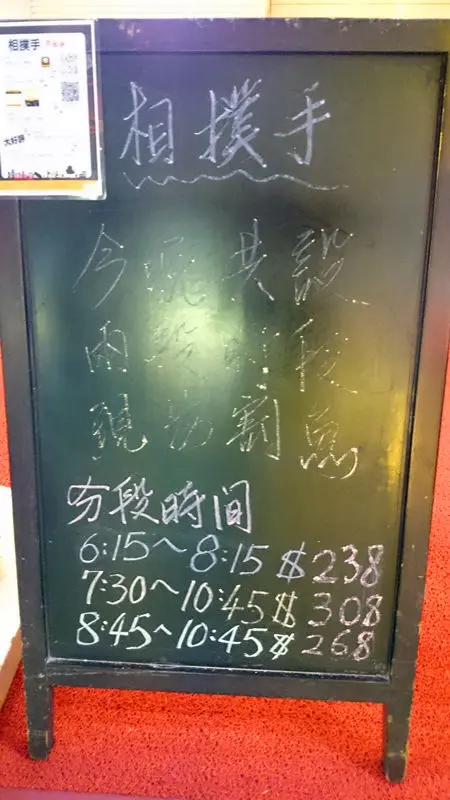 相撲手
大好評
相撲手
今晚共設
兩段時段
現場劏魚
分段時間
6:15~8:15 $238
7:30~10:45 $308
8:45~10:45 $268